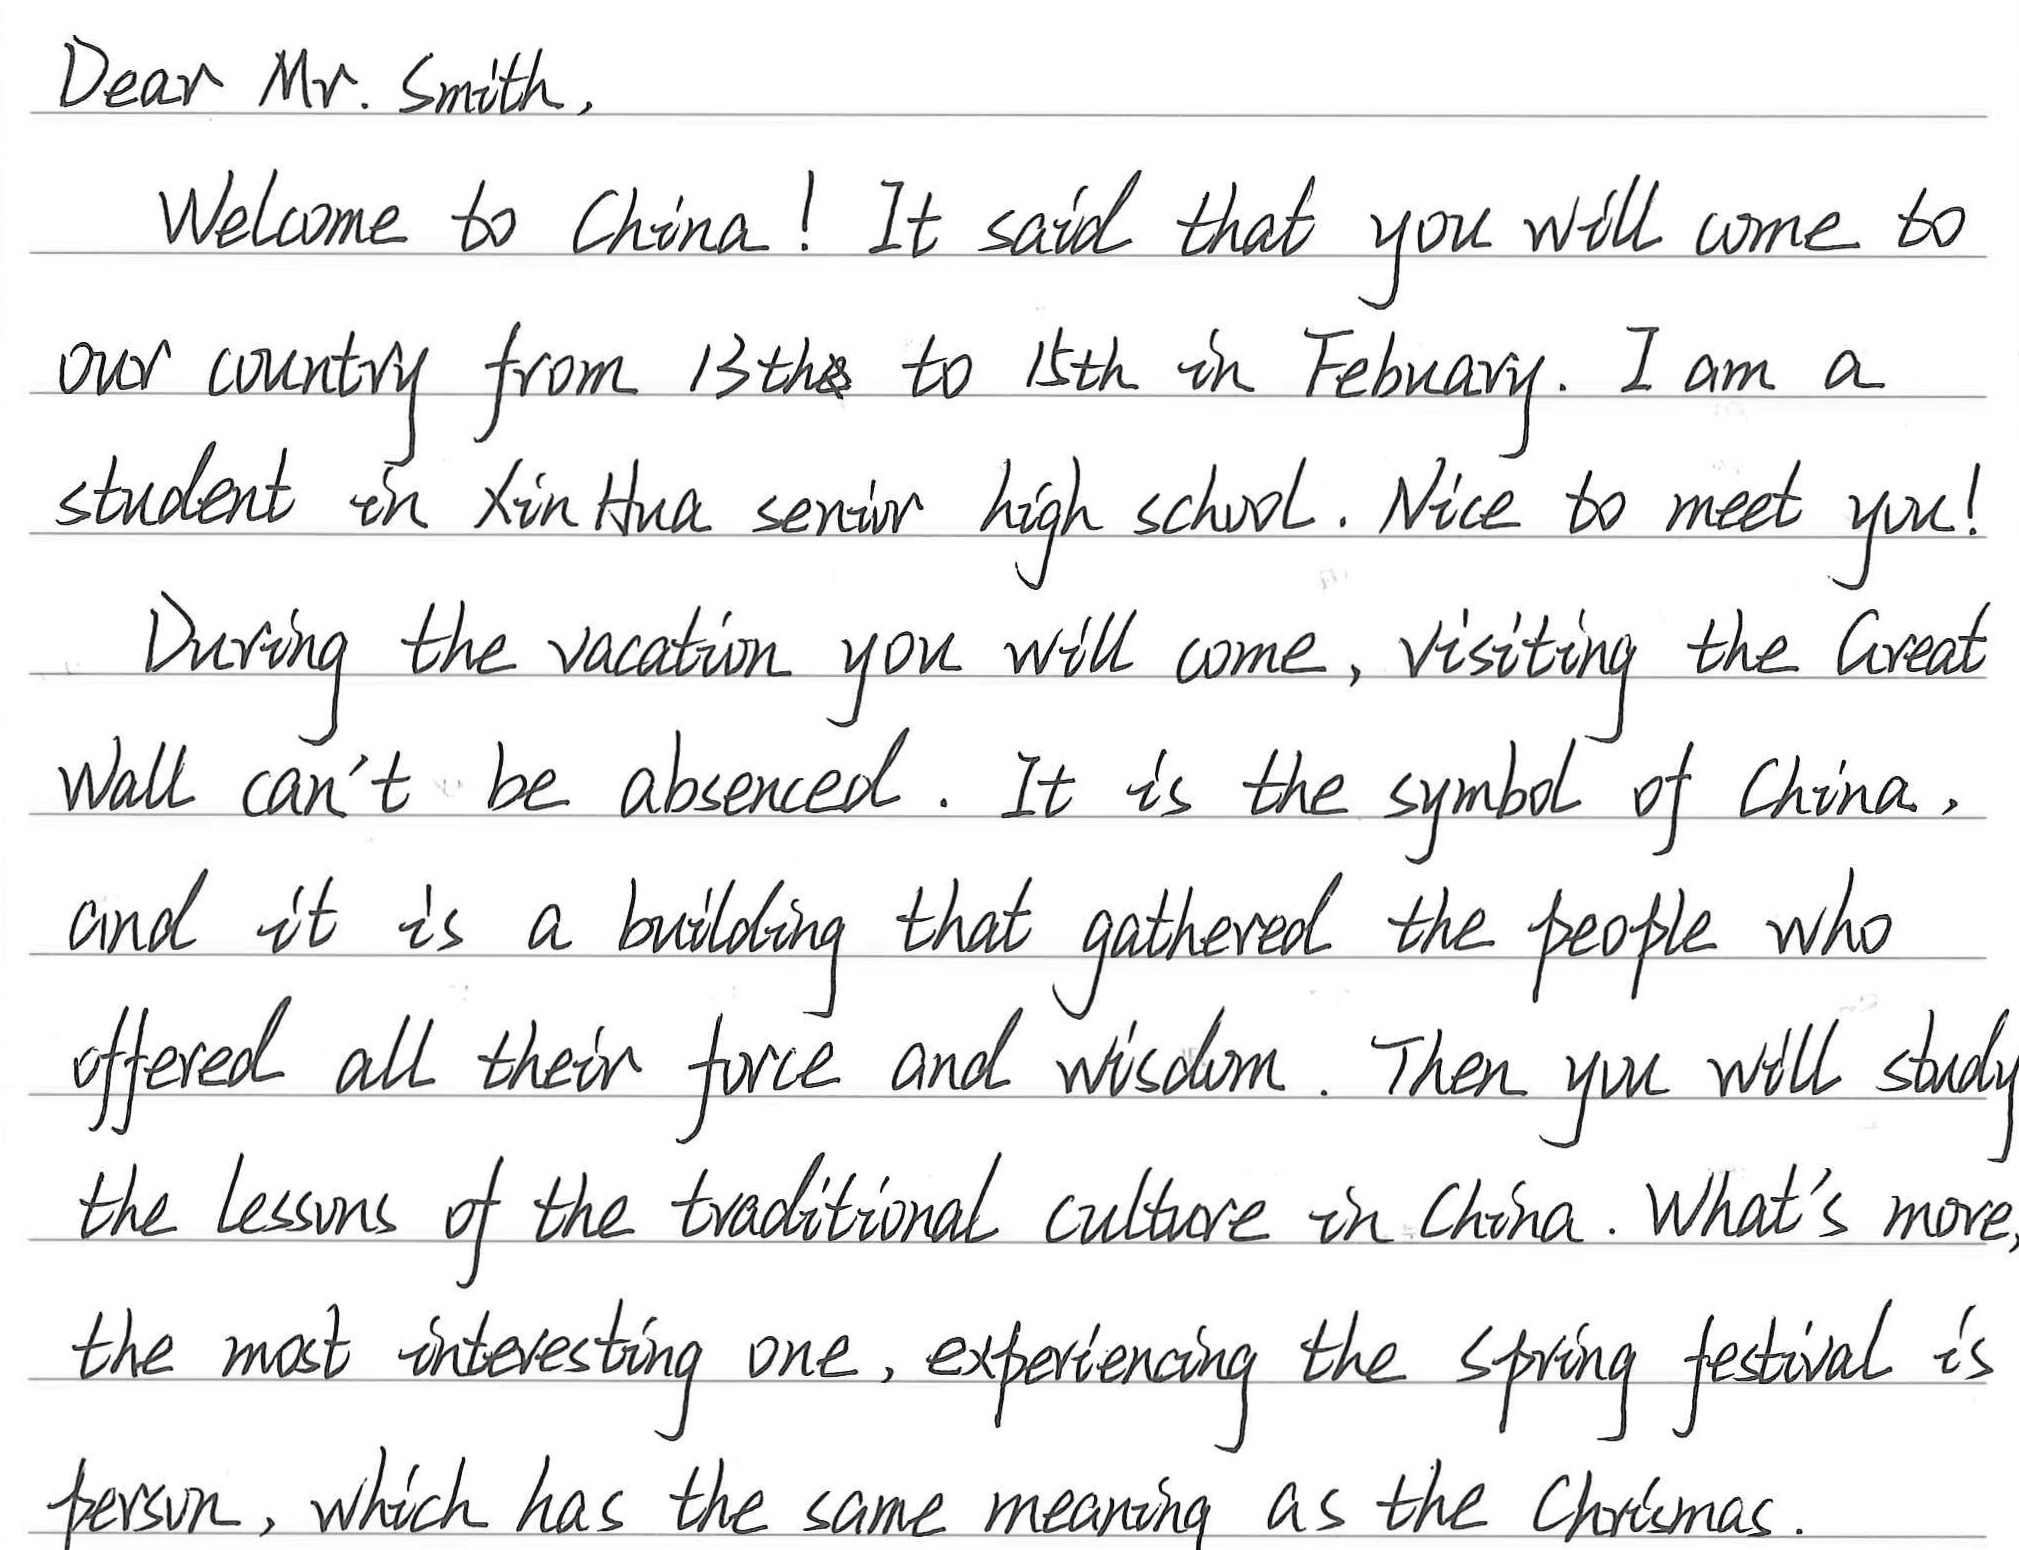 Dear Mr. Smith,
Welcome to China! It said that you will come to
our country from 13th to 15th in Febuary. I am a
student in XinHua senior high school. Nice to meet you!
During the vacation you will come, visiting the Great
Wall can't be absenced. It is the symbol of China,
and it is a building that gathered the people who
offered all their force and wisdom. Then you will study
the lessons of the traditional culture in China. What's more,
the most interesting one, experiencing the spring festival is
person, which has the same meaning as the Chrismas.